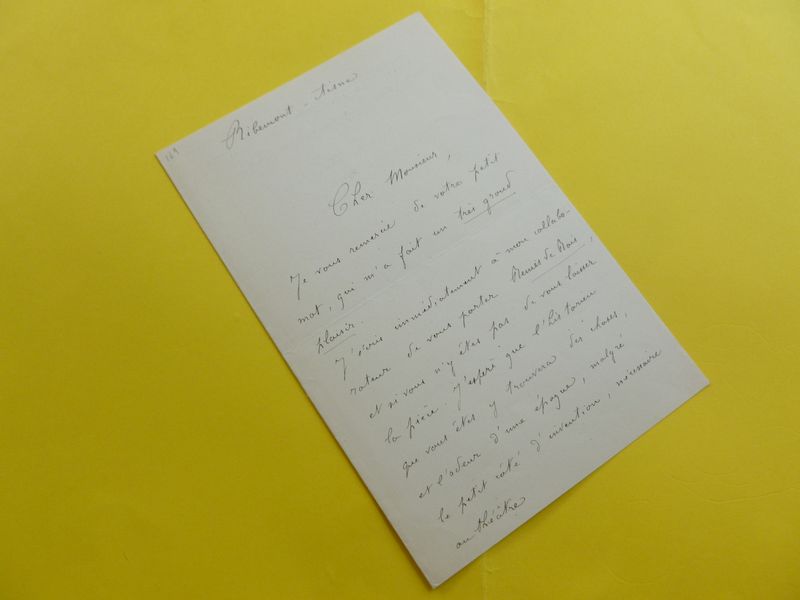 169
Ribemont - Aisne
Cher Monsieur,
Je vous remercie de votre petit
mot, qui m'a fait un très grand
plaisir.
J'écris immédiatement à mon collabo-
rateur de vous porter Reines de Rois,
et si vous n'y êtes pas de vous laisser
la pièce. J'espère que l'historien
que vous êtes y trouvera des choses,
et l'odeur d'une époque, malgré
le petit côté d'invention, nécessaire
au théâtre